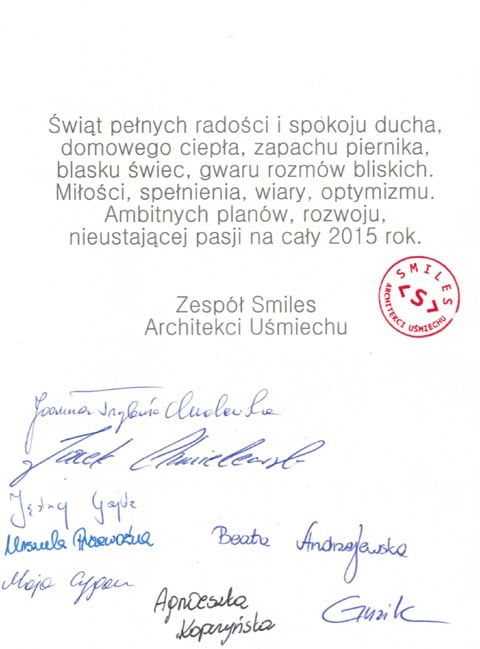 Świąt pełnych radości i spokoju ducha,
domowego ciepła, zapachu piernika,
blasku świec, gwaru rozmów bliskich.
Miłości, spełnienia, wiary, optymizmu.
Ambitnych planów, rozwoju,
nieustającej pasji na cały 2015 rok.
SMILES
ARCHITEKCI UŚMIECHU
Zespół Smiles
Architekci Uśmiechu
Joanna
Jacek Chmielewski
Gajda
Urszula
Beata Andrzejewska
Maja Cygan
Agnieszka
Kopczyńska
Guzik